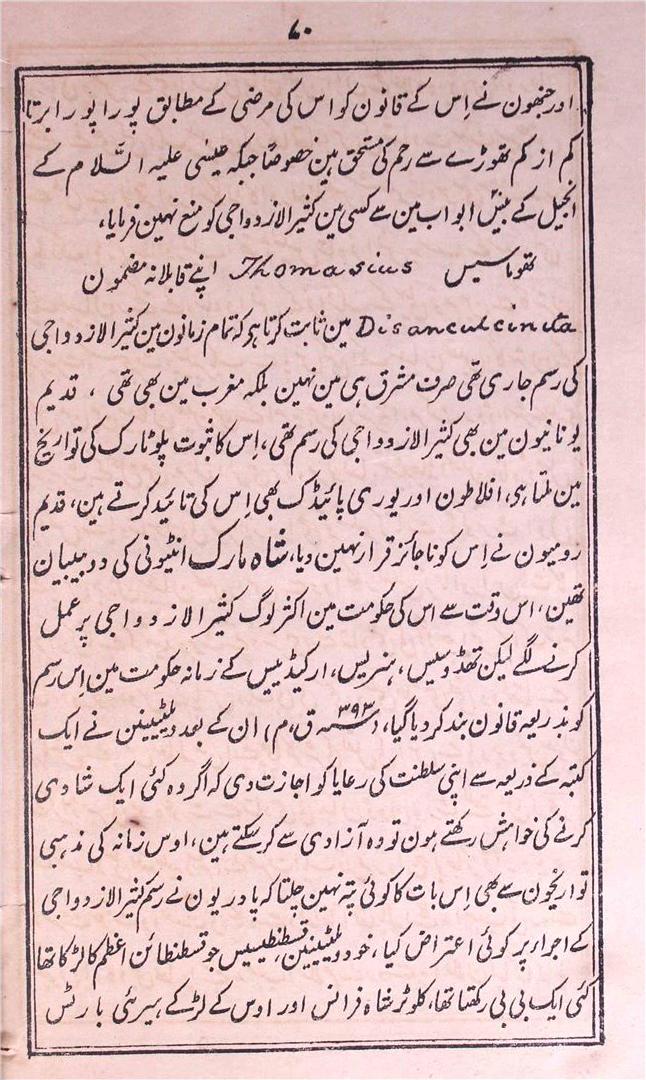 ۸۰
اور جنھون نے اِس کے قانون کو اس کی مرضی کے مطابق پورا پورا برتا
کم از کم تھوڑے سے رحم کی مستحق ہین خصوصاً جبکہ عیسٰی علیہ السَّلام کے
انجیل کے بیسؔ ابواب مین سے کسی مین کثیر الازدواجی کو منع نہین فرمایا،
تھوماسیس Thomasius اپنے قابلانہ مضمون
Disanculcincta مین ثابت کرتا ہی کہ تمام زمانون مین کثیر الازدواجی
کی رسم جاری تھی صرف مشرق ہی مین نہین بلکہ مغرب مین بھی تھی ، قدیم
یونانیون مین بھی کثیر الازدواجی کی رسم تھی، اِس کا ثبوت پلوٹارک کی تواریخ
مین ملتا ہی، افلاطون اور یوری پائیڈک بھی اِس کی تائید کرتے ہین، قدیم
رومیون نے اِس کو ناجائز قرار نہین دیا، شاہ مارک انٹیونی کی دو بیبیان
تھین، اس وقت سے اس کی حکومت مین اکثر لوگ کثیر الازدواجی پر عمل
کرنے لگے لیکن تھڈوسیس، ہنریس، ارکیڈیس کے زمانہ حکومت مین اِس رسم
کو بذریعہ قانون بند کر دیا گیا، (۳۹۳؁ ق، م) ان کے بعد ویلٹینین نے ایک
کتبہ کے ذریعہ سے اپنی سلطنت کی رعایا کو اجازت دی کہ اگر وہ کئی ایک شادی
کرنے کی خواہش رکھتے ہون تو وہ آزادی سے کر سکتے ہین، اوس زمانہ کی مذہبی
تواریخون سے بھی اِس بات کا کوئی پتہ نہین چلتا کہ پادریون نے رسم کثیر الازدواجی
کے اجراء پر کوئی اعتراض کیا، خود ویلٹینین قسطنطیسیس جو قسطنطائن اعظم کا لڑکا تھا
کئی ایک بی بی رکھتا تھا، کلوٹر شاہ فرانس اور اوس کے لڑکے ہیرئی بارٹس